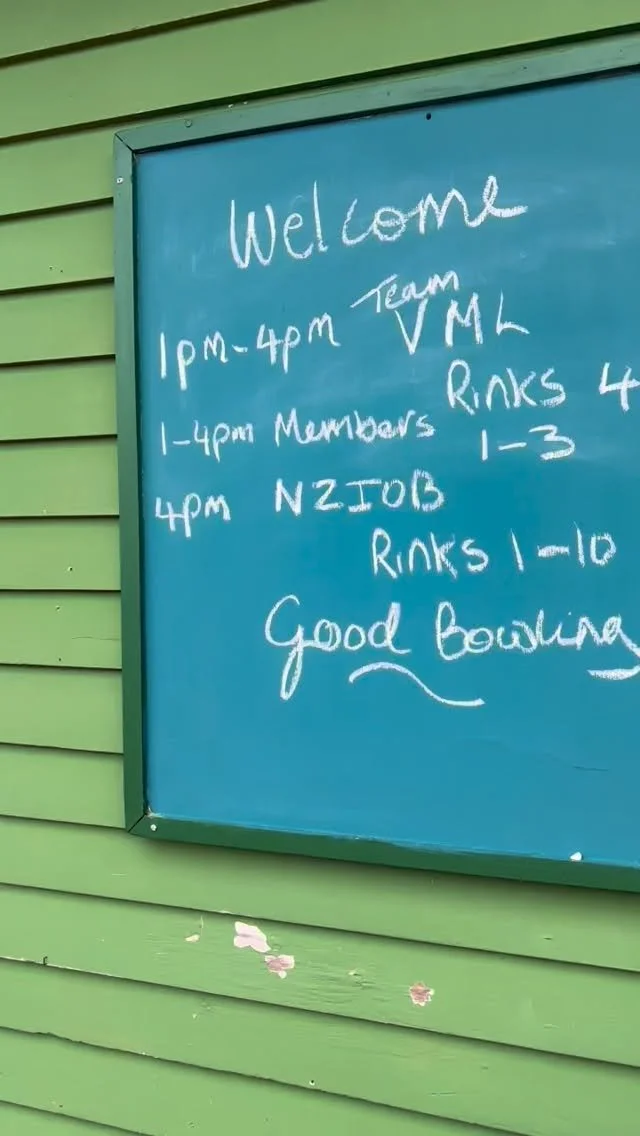 Welcome
1pm-4pm Team VML
Rinks 4
1-4pm Members 1-3
4pm NZIOB
Rinks 1-10
Good Bowling